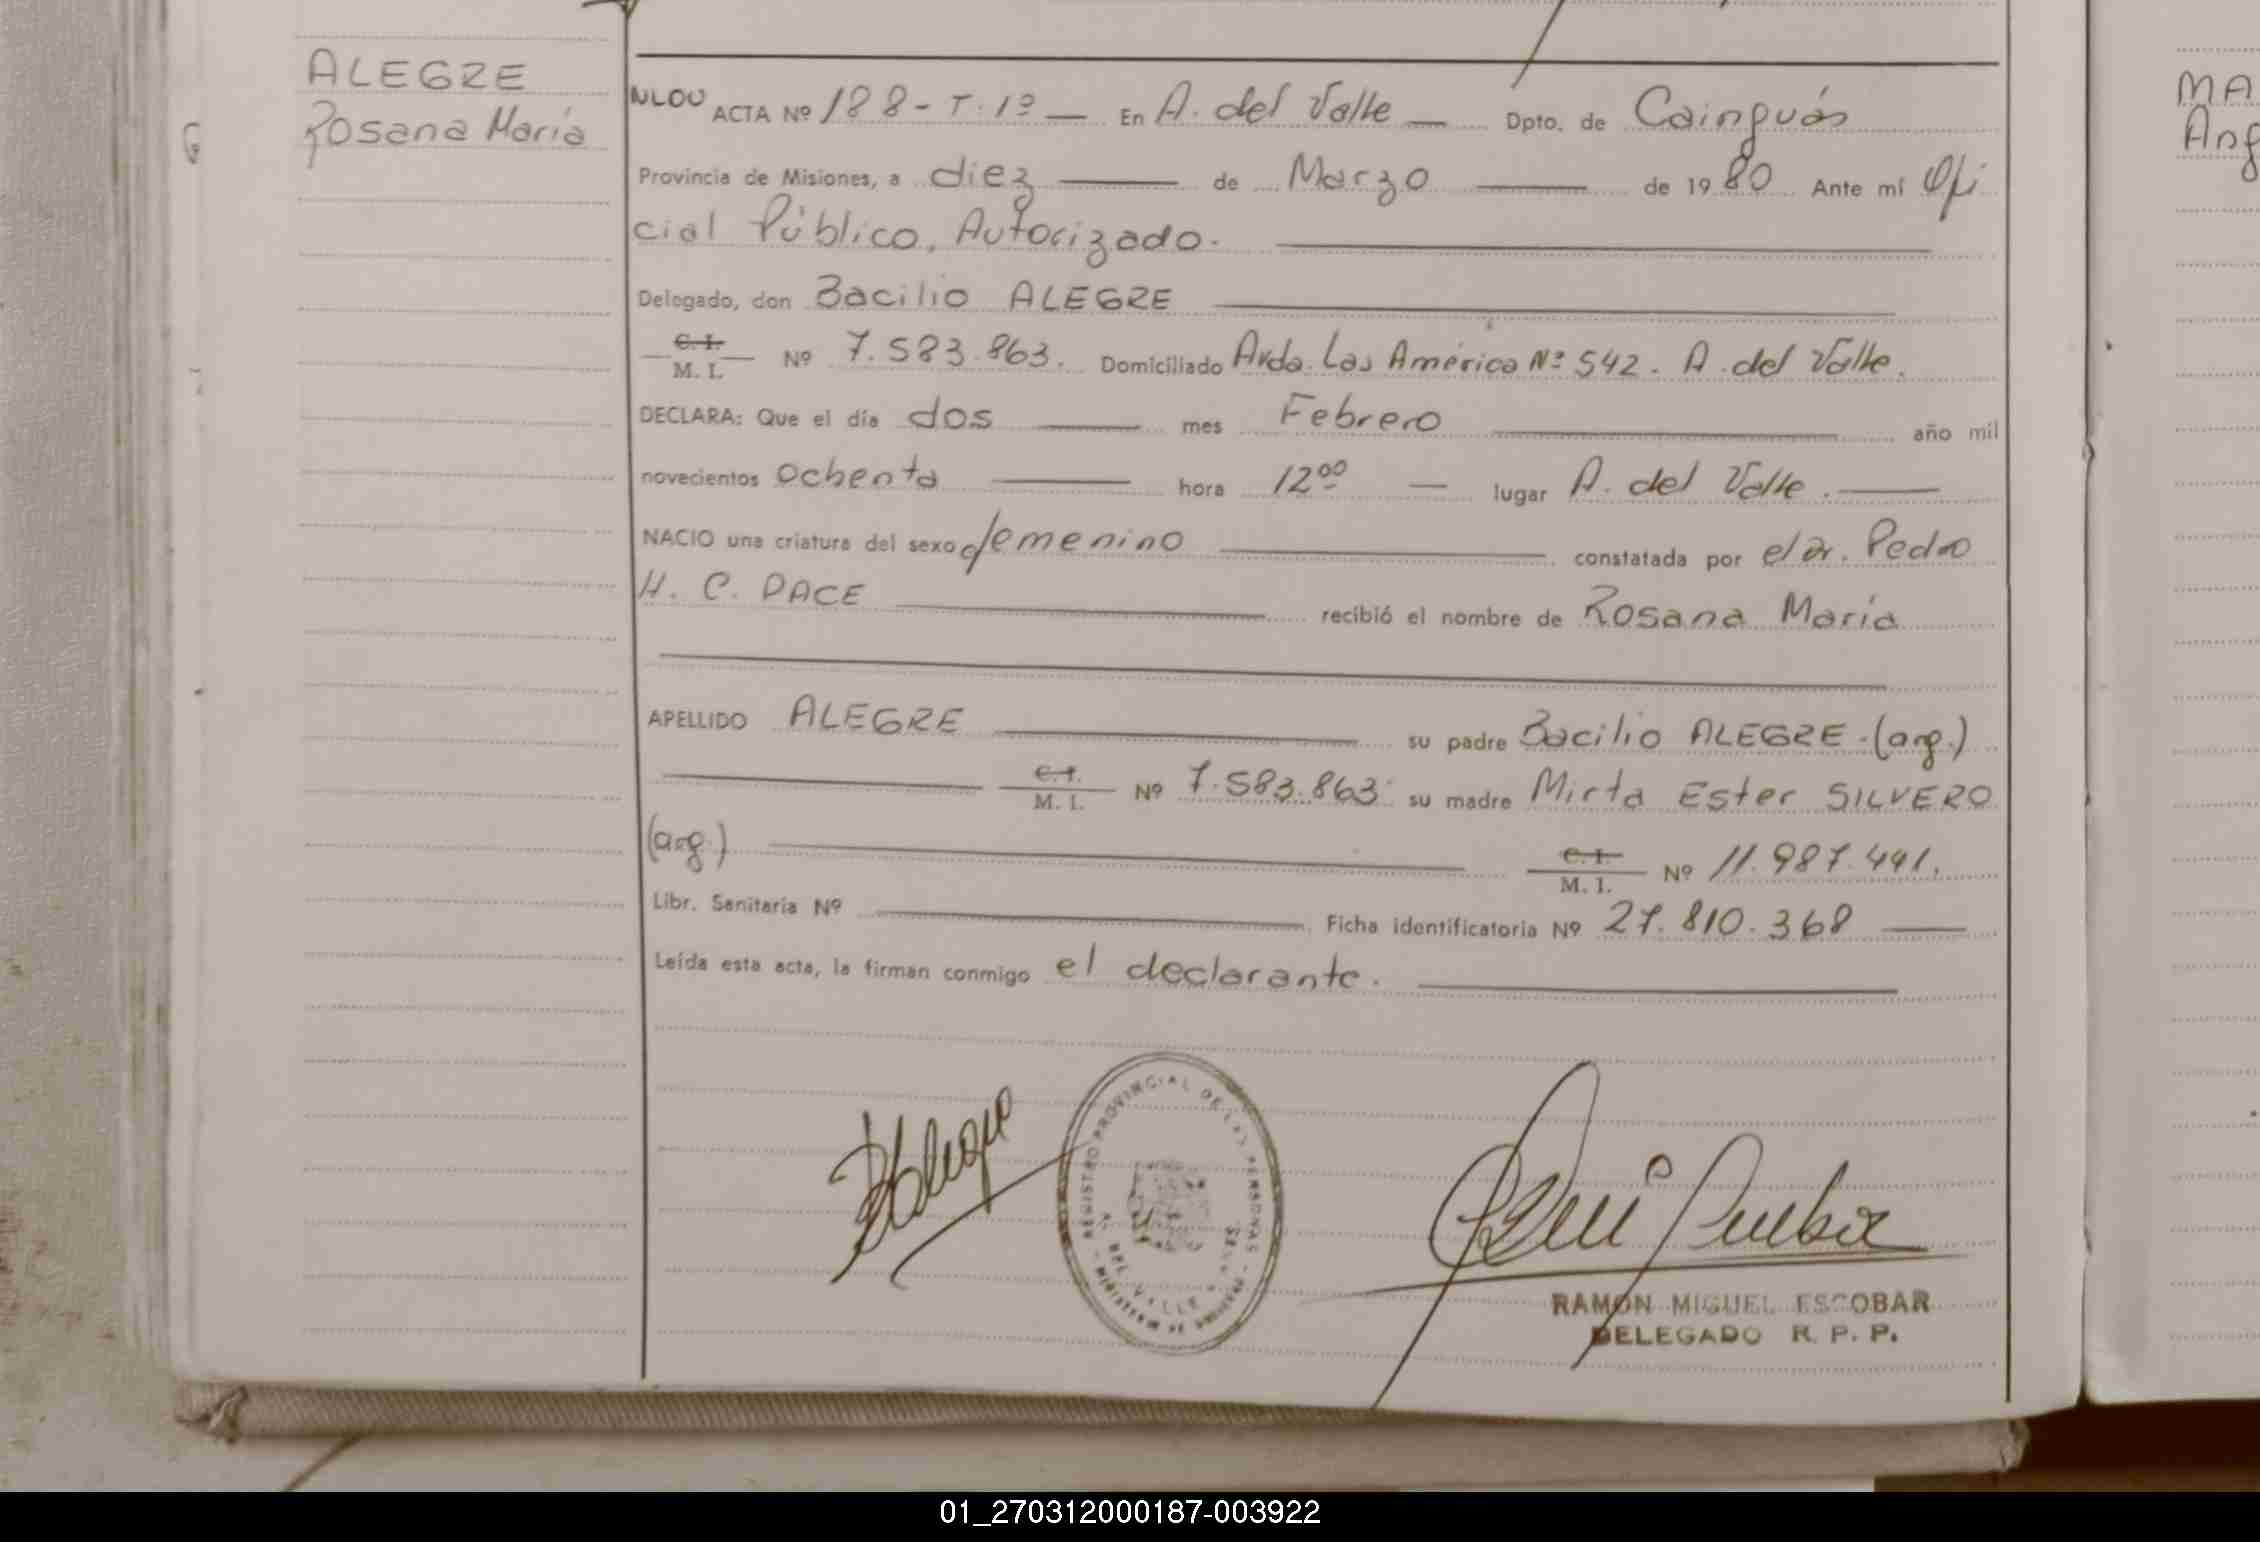 ALEGRE
Rosana María
ACTA Nº 188 - T. 1º — En A. del Valle — Dpto. de Cainguás
Provincia de Misiones, a diez de Marzo de 1980 Ante mí Ofi
cial Público, Autorizado.
Delegado, don Bacilio ALEGRE
C. I.
M. I. Nº 7.583.863. Domiciliado Avda. Las América Nº 542. A. del Valle.
DECLARA: Que el día dos mes Febrero año mil
novecientos ochenta hora 12ºº — lugar A. del Valle.
NACIO una criatura del sexo femenino constatada por el Dr. Pedro
H. C. PACE recibió el nombre de Rosana María
APELLIDO ALEGRE su padre Bacilio ALEGRE. (arg.)
C. I.
M. I. Nº 7.583.863 su madre Mirta Ester SILVERO
(arg.) C. I.
M. I. Nº 11.987.441.
Libr. Sanitaria Nº Ficha identificatoria Nº 27.810.368
Leída esta acta, la firman conmigo el declarante.
REGISTRO PROVINCIAL DE LAS PERSONAS
DEL VALLE
RAMON MIGUEL ESCOBAR
DELEGADO R. P. P.
MA
Ang
01_270312000187-003922